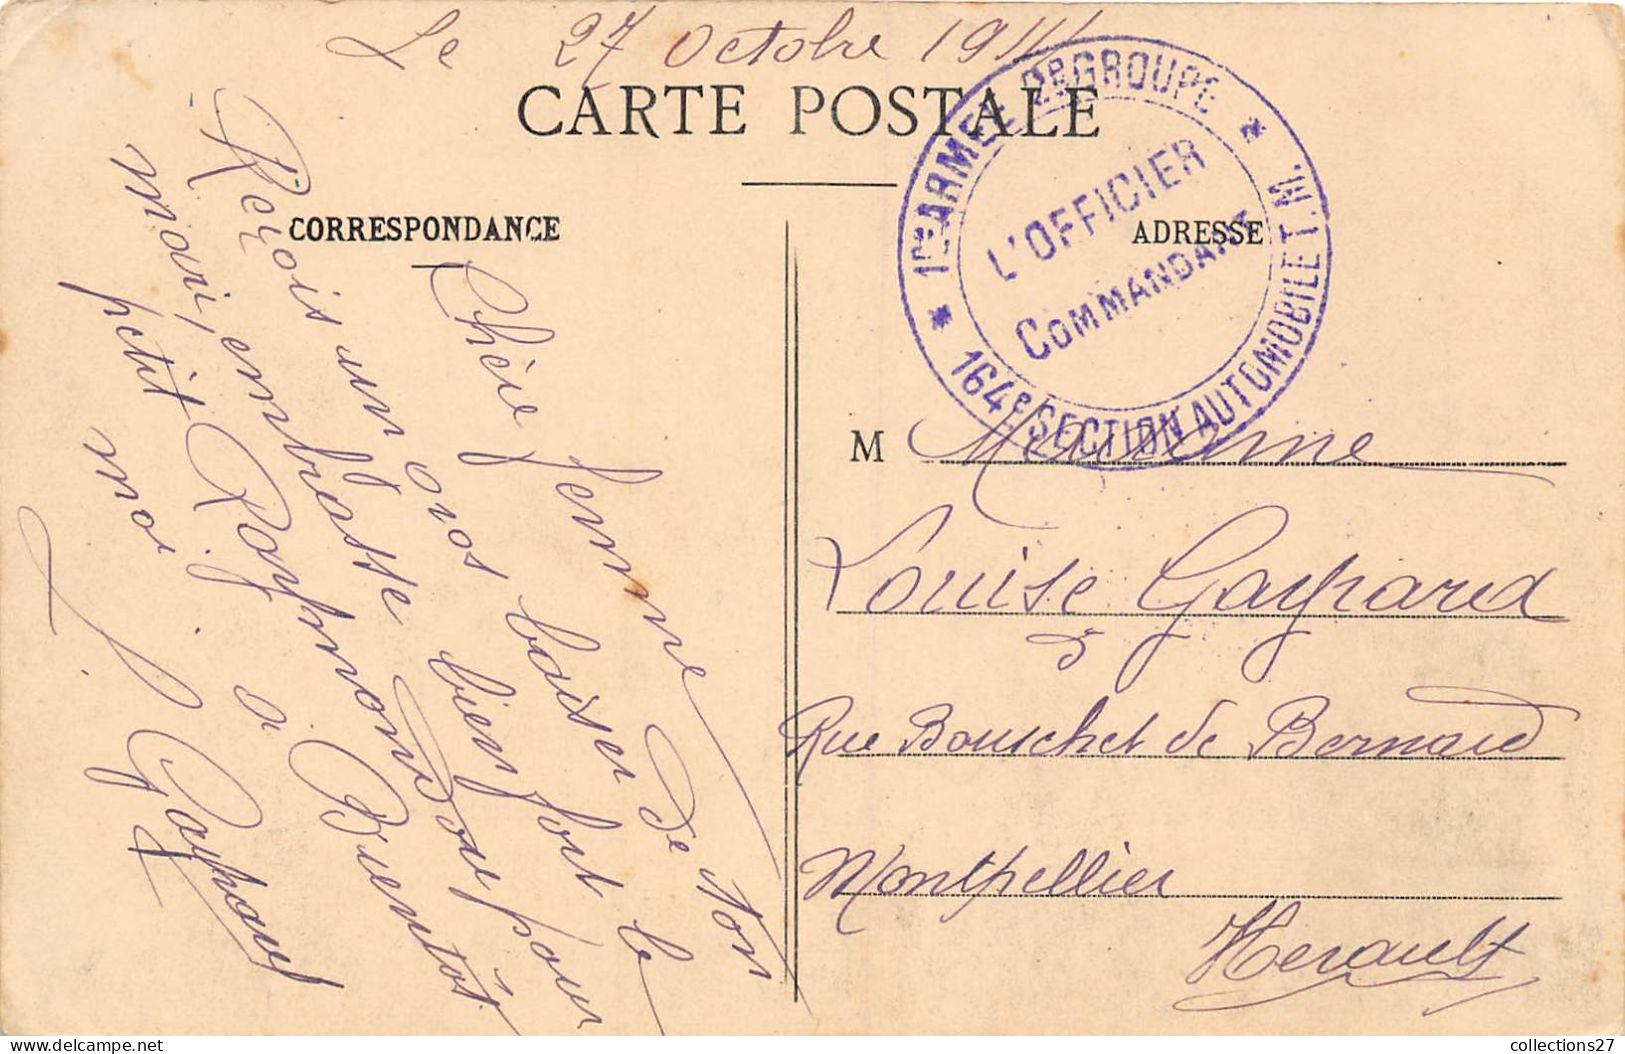 Le 27 Octobre 1914
CARTE POSTALE
CORRESPONDANCE
ADRESSE
1re ARMEE 2e GROUPE * 164e SECTION AUTOMOBILE T. M. *
L'OFFICIER
COMMANDANT
Chère femme
Reçois un gros baiser de ton
mari, embrasse bien fort le
petit Raymond pour
moi. à Bientôt
L. Gaspard
M Madame
Louise Gaspard
3
Rue Bouschet de Bernard
Montpellier
Herault
collections27